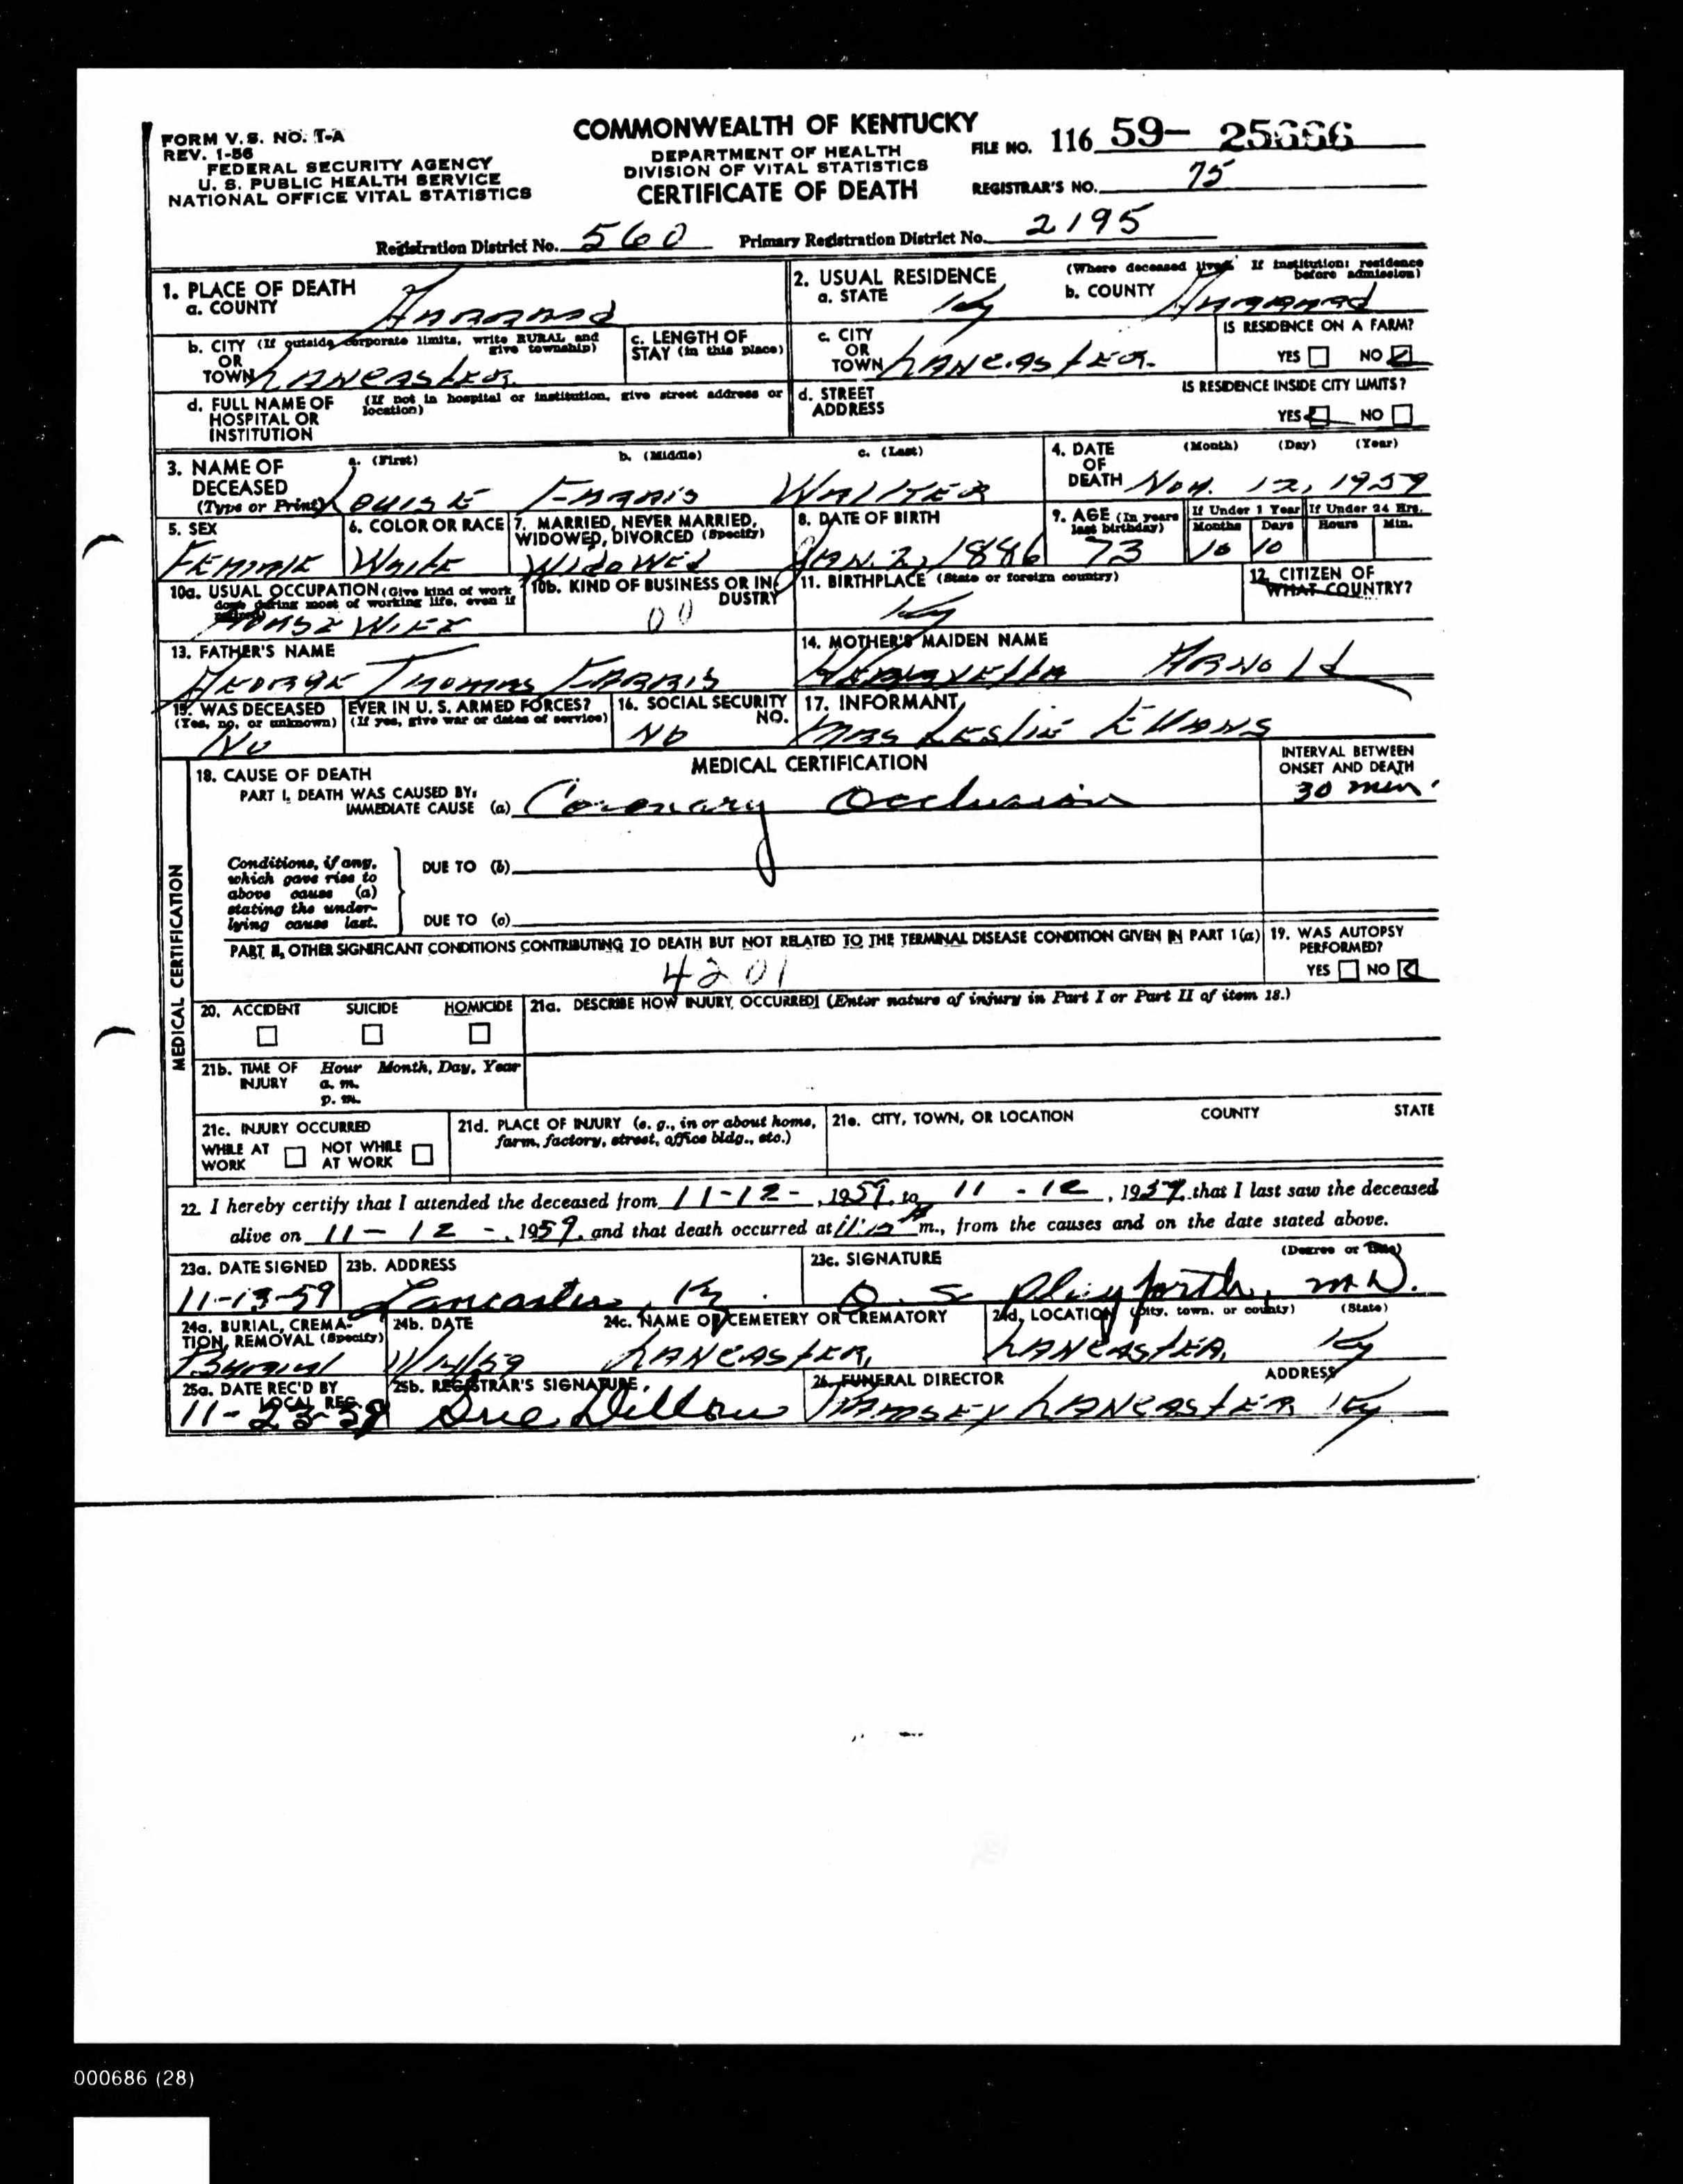 FORM V. S. NO. 1-A
REV. 1-56
FEDERAL SECURITY AGENCY
U. S. PUBLIC HEALTH SERVICE
NATIONAL OFFICE VITAL STATISTICS
COMMONWEALTH OF KENTUCKY
DEPARTMENT OF HEALTH
DIVISION OF VITAL STATISTICS
CERTIFICATE OF DEATH
FILE NO. 116 59-
REGISTRAR'S NO. 75
Registration District No. 560 Primary Registration District No. 2195
1. PLACE OF DEATH
a. COUNTY Garrard
2. USUAL RESIDENCE (Where deceased lived. If institution: residence before admission)
a. STATE Ky b. COUNTY Garrard
b. CITY (If outside corporate limits, write RURAL and give township)
OR
TOWN Lancaster
c. LENGTH OF STAY (in this place)
c. CITY
OR
TOWN Lancaster.
IS RESIDENCE ON A FARM?
YES NO
d. FULL NAME OF HOSPITAL OR INSTITUTION (If not in hospital or institution, give street address or location)
d. STREET ADDRESS
IS RESIDENCE INSIDE CITY LIMITS?
YES NO
3. NAME OF DECEASED (Type or Print)
a. (First) b. (Middle) c. (Last)
Louise Farris Walker
4. DATE OF DEATH (Month) (Day) (Year)
Nov. 12, 1959
5. SEX
Female
6. COLOR OR RACE
White
7. MARRIED, NEVER MARRIED, WIDOWED, DIVORCED (Specify)
Widowed
8. DATE OF BIRTH
Jan. 2, 1886
9. AGE (In years last birthday)
73
If Under 1 Year
Months Days
10 10
If Under 24 Hrs.
Hours Min.
10a. USUAL OCCUPATION (Give kind of work done during most of working life, even if retired)
House Wife
10b. KIND OF BUSINESS OR INDUSTRY
00
11. BIRTHPLACE (State or foreign country)
Ky
12. CITIZEN OF WHAT COUNTRY?
13. FATHER'S NAME
George Thomas Farris
14. MOTHER'S MAIDEN NAME
Arnold
15. WAS DECEASED EVER IN U. S. ARMED FORCES?
(Yes, no, or unknown) (If yes, give war or dates of service)
No
16. SOCIAL SECURITY NO.
No
17. INFORMANT
Mrs Leslie Evans
MEDICAL CERTIFICATION
MEDICAL CERTIFICATION
18. CAUSE OF DEATH
PART I. DEATH WAS CAUSED BY:
IMMEDIATE CAUSE (a) Coronary Occlusion
INTERVAL BETWEEN ONSET AND DEATH
30 min.
Conditions, if any, which gave rise to above cause (a) stating the underlying cause last.
DUE TO (b)
DUE TO (c)
PART II, OTHER SIGNIFICANT CONDITIONS CONTRIBUTING TO DEATH BUT NOT RELATED TO THE TERMINAL DISEASE CONDITION GIVEN IN PART 1(a)
4201
19. WAS AUTOPSY PERFORMED?
YES NO
20. ACCIDENT SUICIDE HOMICIDE
21a. DESCRIBE HOW INJURY OCCURRED! (Enter nature of injury in Part I or Part II of item 18.)
21b. TIME OF INJURY Hour Month, Day, Year
a. m.
p. m.
21c. INJURY OCCURRED
WHILE AT WORK NOT WHILE AT WORK
21d. PLACE OF INJURY (e. g., in or about home, farm, factory, street, office bldg., etc.)
21e. CITY, TOWN, OR LOCATION COUNTY STATE
22. I hereby certify that I attended the deceased from 11-12-, 1959, to 11-12, 1959, that I last saw the deceased
alive on 11-12-, 1959, and that death occurred at m., from the causes and on the date stated above.
23a. DATE SIGNED
11-13-59
23b. ADDRESS
Lancaster, Ky.
23c. SIGNATURE (Degree or title)
Playforth, M.D.
24a. BURIAL, CREMATION, REMOVAL (Specify)
Burial
24b. DATE
11/14/59
24c. NAME OF CEMETERY OR CREMATORY
Lancaster,
24d. LOCATION (City, town, or county) (State)
Lancaster, Ky
25a. DATE REC'D BY LOCAL REG.
11-23-59
25b. REGISTRAR'S SIGNATURE
Sue Dillow
26. FUNERAL DIRECTOR ADDRESS
Ramsey Lancaster Ky
000686 (28)